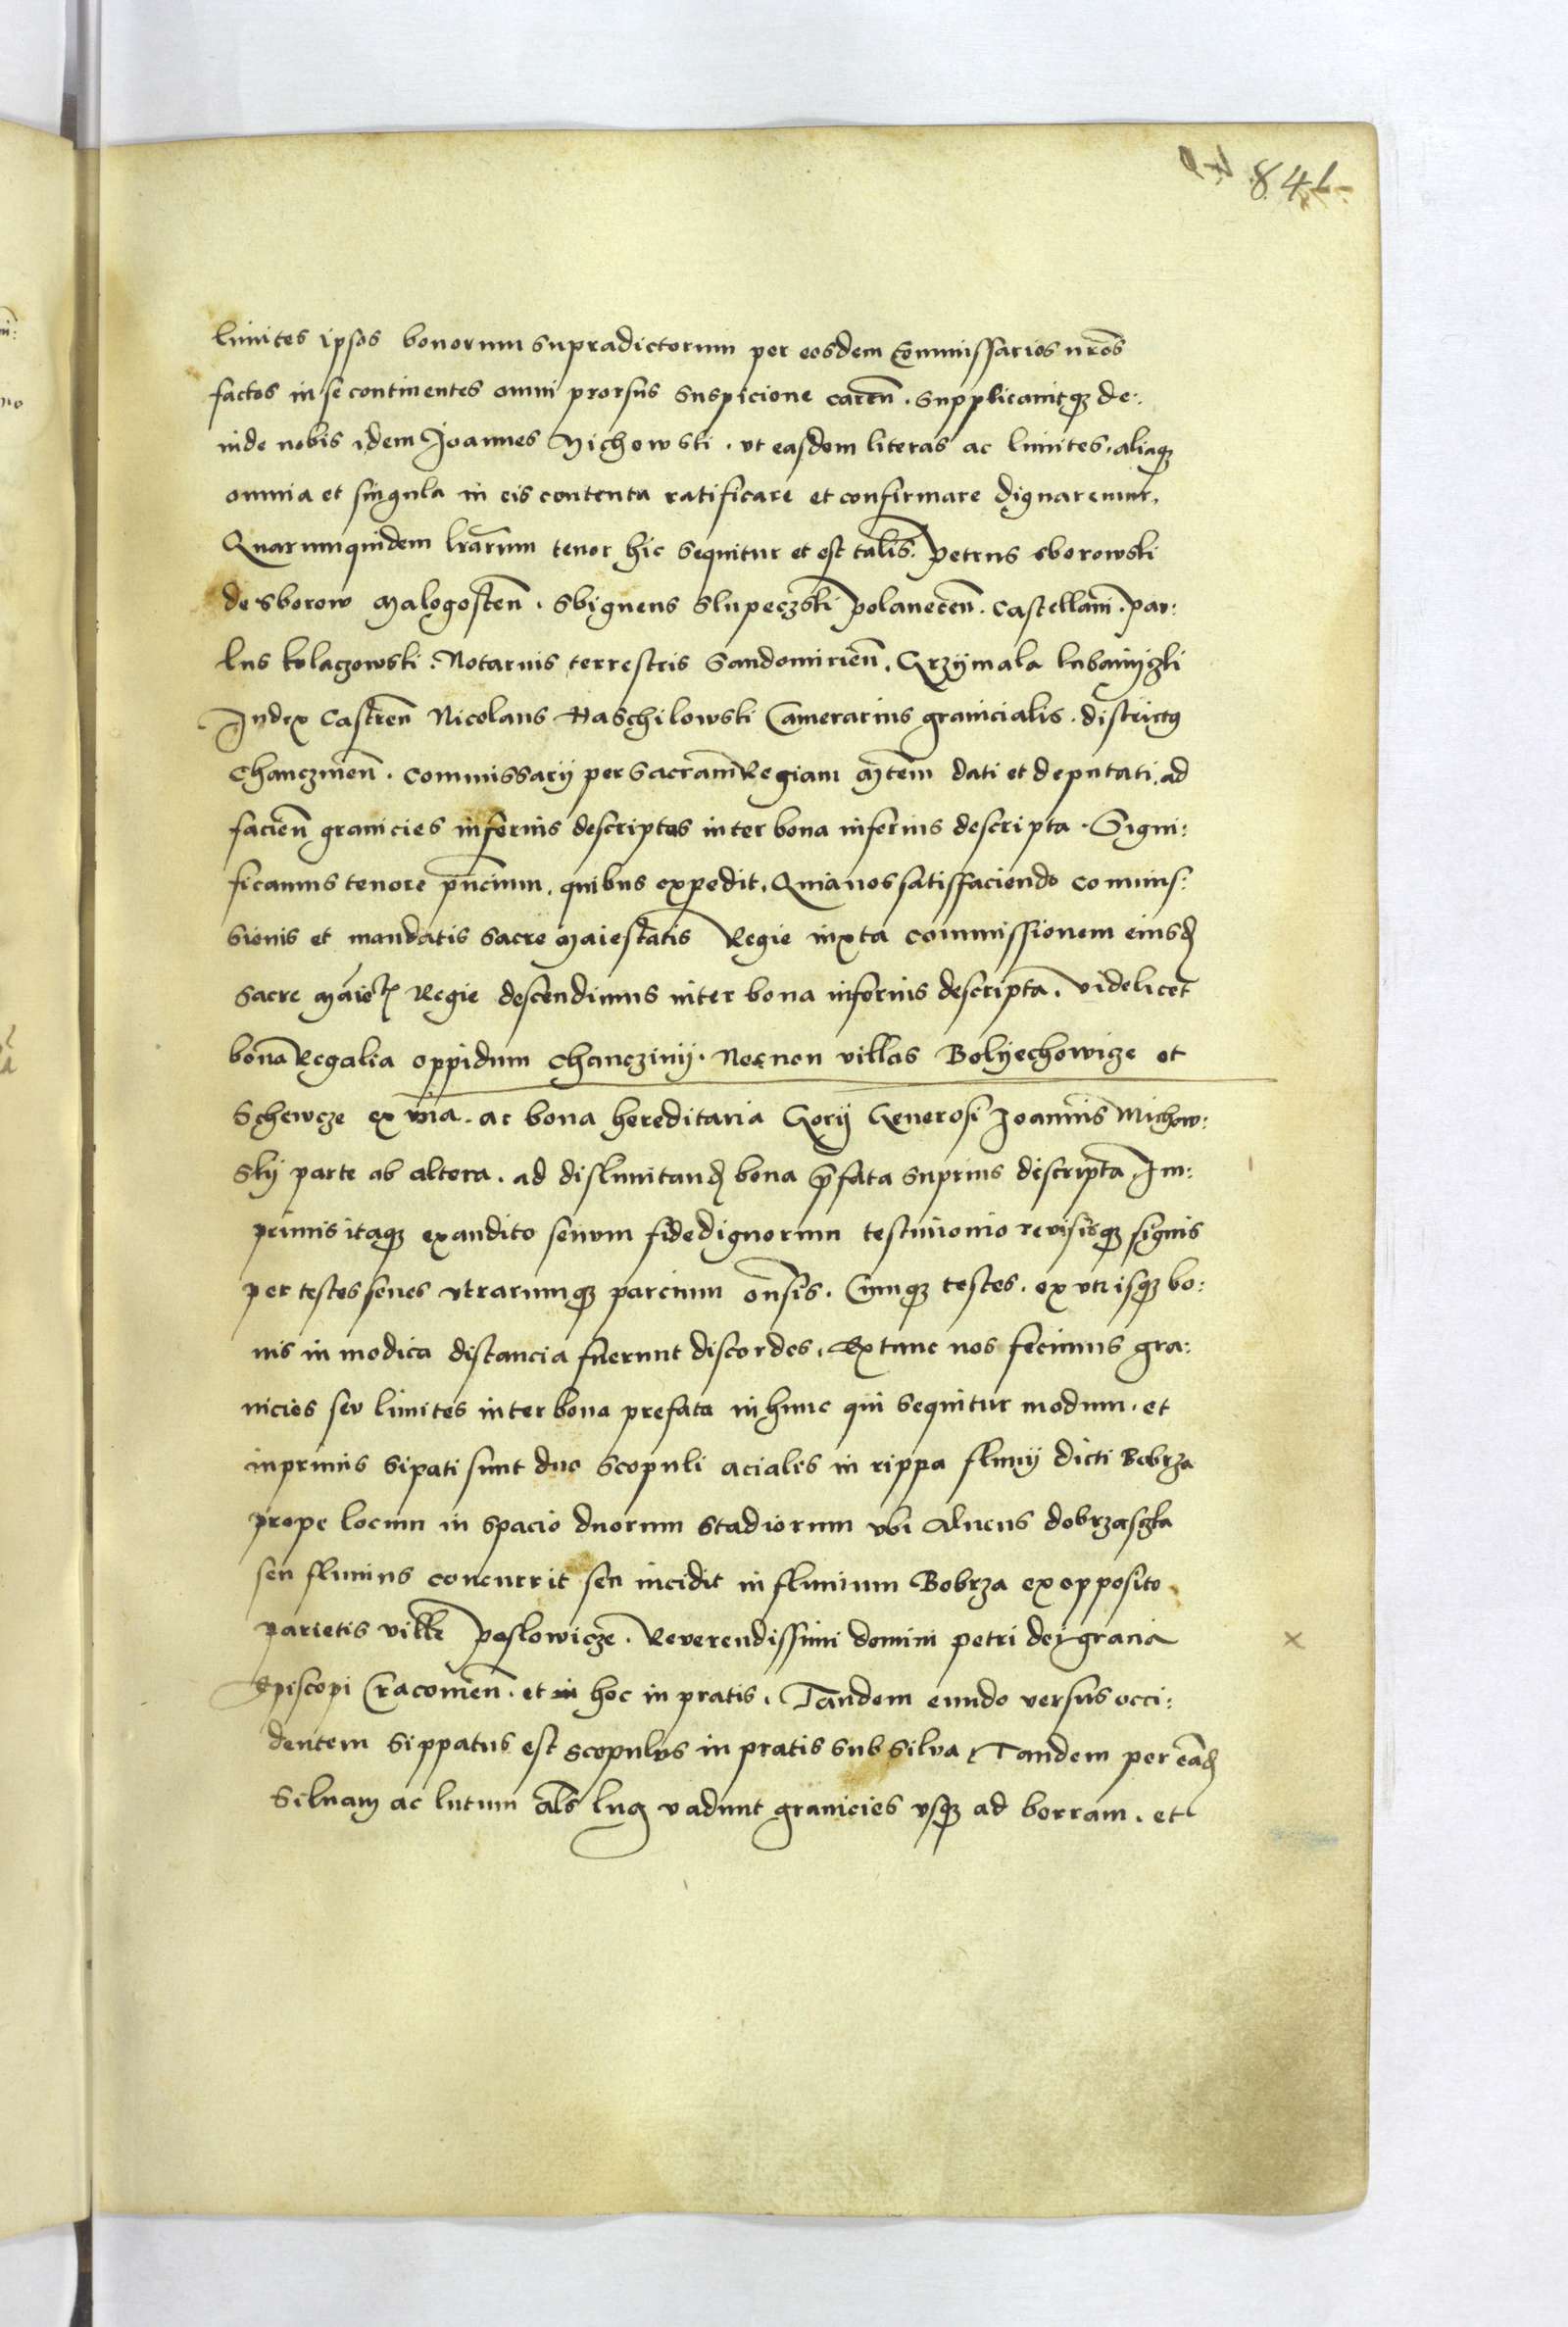 841
limites ipsos bonorum supradictorum per eosdem Commissarios nrōs
factos in se continentes omni prorsus suspicione carēn. supplicauitqz de:
inde nobis idem Joannes Michowski. vt easdem literas ac limites. aliaqz
omnia et singula in eis contenta ratificare et confirmare dignaremur.
Quarumquidem lrārum tenor hic sequitur et est talis. Petrus sborowski
de sborow Malogostēn. Sbigneus Slupeczski polanecēn. Castellani. Pau:
lus kolaczowski. Notarius terrestris Sandomiriēn. Grzymala
Judex Castrēn Nicolaus Haschilowski Camerarius granicialis. districtus
Chanczinēn. Commissarij per Sacram Regiam Mtēm dati et deputati. ad
faciēn granicies inferius descriptas inter bona inferius descripta. Signi:
ficamus tenore pn̄cium. quibus expedit. Quia nos satisfaciendo commis:
sionis et mandatis sacre Maiestatis Regie iuxta commissionem eiusd
sacre Maiet Regie descendimus inter bona inferius descripta. videlicet
bona Regalia oppidum Chanczinij. Necnon villas Bolyechowize et
Schewcze ex vna. ac bona hereditaria Gorij Generosi Joannis Michow:
skij parte ab altera. ad dislimitand bona p̄fata superius descripta. Im:
primis itaqz exaudito senum fidedignorum testimonio reuisisqz signis
per testes senes vtrarumqz parcium on̄sis. Cumqz testes. ex vtrisqz bo:
nis in modica distancia fuerunt discordes. Extunc nos fecimus gra:
nicies seu limites inter bona prefata in hunc qui sequitur modum. et
inprimis sipati sunt duo scopuli aciales in rippa fluuij dicti Bobrza
prope locum in spacio duorum stadiorum vbi alueus dobrzaszka
seu fluuius concurrit seu incidit in fluuium Bobrza ex opposito
parietis ville Poslowicze. Reuerendissimi domini petri dei gracia
Episcopi Cracouiēn. et in hoc in pratis. Tandem eundo versus occi:
dentem sippatus est scopulus in pratis sub silua Tandem per eād
Siluam ac lutum al̄s lug vadunt granicies vsqz ad borram. et